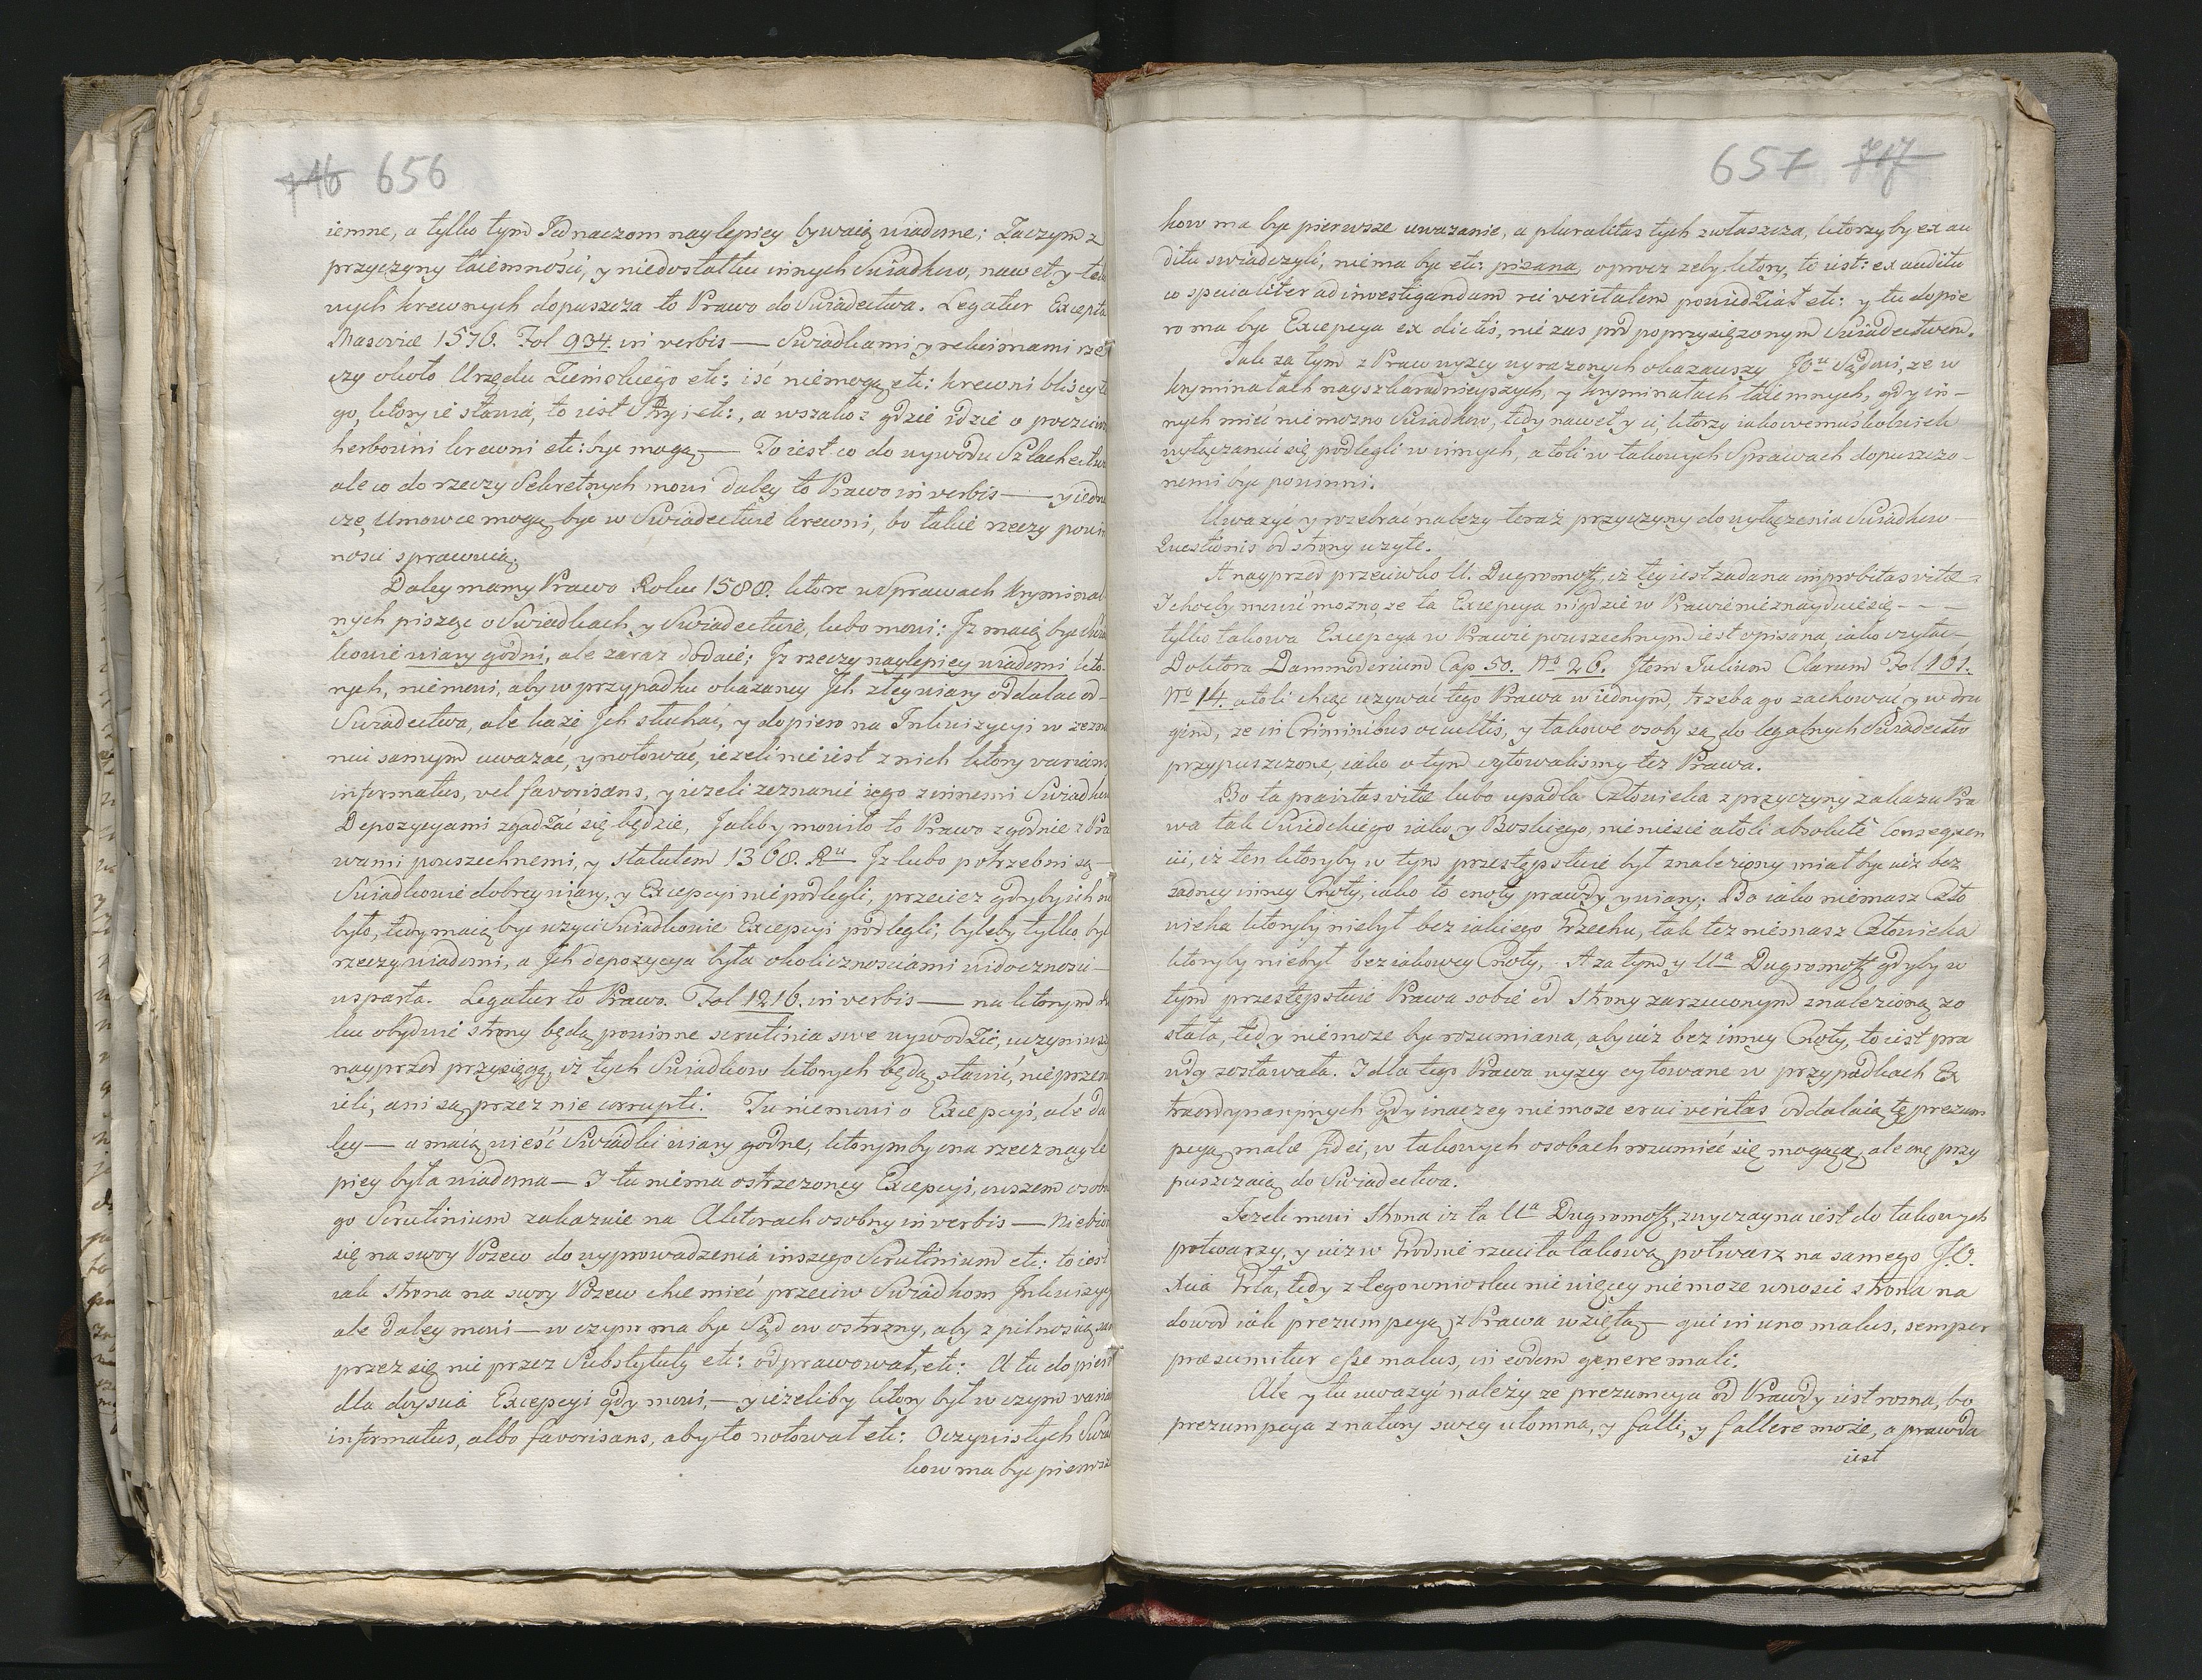 746 656
iemne, a tylko tym Jednaczom naylepiey bywaią wiadome; Zaczym z
przyczyny taiemności, y niedostatku innych Swiadkow, nawet y te
wnych krewnych dopuszcza to Prawo do Swiadectwa. Legatur Excepta
Masoviæ 1576. Fol 934. in verbis — Swiadkami y rekuimami rze
czy około Urzędu Ziemskiego etc: iść niemogą etc: krewni bliscy te
go, ktory ie stawia, to iest Stryi etc:, a wszakoz gdzie idzie o poczciw
herbowni krewni etc: byc mogą — To iest co do wywodu Szlachectwa
ale co do rzeczy Sekretnych mowi daley to Prawo in verbis — y iedna
czę Umowce mogą byc w Swiadectwie krewni, bo takie rzeczy powin
nosci sprawuią.
Daley mamy Prawo Roku 1588. ktore w Sprawach kryminal
nych piszęc o Swiadkach y Swiadectwie, lubo mowi: Jz maią byc Swia
kowie wiary godni, ale zaraz dodaie; Jz rzeczy naylepiey wiadomi kto
rych, niemowi, aby w przypadku okazaney Jch złey wiary oddalac od
Swiadectwa, ale każe Jch słuchać, y dopiero na Jnkwizycyi w zezna
niu samym uwazac, y notować, iezeli nie iest z nich ktory varians
informatus, vel favorisans, y iezeli zeznanie iego z innemi Swiadkow
Depozycyami zgadźać się będzie, Jakby mowiło to Prawo zgodnie z Pra
wami powszechnemi, y statutem 1368. Ru Jz lubo potrzebni są
Swiadkowie dobrey wiary, y Excepcyi nie podlegli, przeciez gdyby ich nie
było, tedy maią byc uzyci Swiadkowie Excepcyi podlegli; byleby tylko byli
rzeczy wiadomi, a Jch depozycya była okolicznosciami widocznosci
wsparta. Legatur to Prawo. Fol 1216. in verbis — na ktorym
ku obydwie strony będą powinne scrutinia swe wywodzić, uczyniwszy
nayprzed przysięgę, iż tych Swiadkow ktorych będą stawić, nieprzena
ieli, ani są przez nie corrupti. Tu niemowi o Excepcyi, ale da
ley — a maią wieść Swiadki wiary godne, ktorymby ona rzecz nayle
piey była wiadoma — I tu niema ostrzezoney Excepcyi, owszem osobne
go Scrutinium zakazuie na Aktorach osobny in verbis — Niebiorą
się na swoy Pozew do wyprowadzenia inszego Scrutinium etc: to iest
iak strona na swoy Pozew chce mieć przeciw Swiadkom Jnkwizycyą
ale daley mowi — w czym ma byc Sąd ow ostrozny, aby z pilnoscią sam
przez się nie przez Substytuty etc: odprawował, etc: A tu dopiero
dla dosycia Excepcyi gdy mowi, — y iezeliby ktory był w czym varia
informatus, albo favorisans, aby to notował etc: Oczywistych Swiad
kow ma byc pierwsze
657 717
kow ma byc pierwsze uwazanie, a pluralitas tych zwłaszcza, ktorzyby ex au
ditu swiadczyli, niema byc etc: pisana, oprocz zeby ktory, to iest: ex auditu
co specialiter ad investigandam rei veritatem powiedział etc: y tu dopie
ro ma byc Excepcya ex dictis, nie zas przd poprzysięzonym Swiadectwem.
Tak za tym z Praw wyzey wyrazonych okazawszy JOu Sądowi, ze w
kryminałach nayszkaradnieyszych, y kryminałach taiemnych, gdy in-
nych mieć niemozno Swiadkow, tedy nawet y ci, ktorzy iakowemuśkolwiek
wyłączaniu się podlegli w innych, atoli w takowych Sprawach dopuszczo-
nemi byc powinni.
Uwazyć y rozebrać nalezy teraz przyczyny do wyłączenia Swiadkow
Questionis od strony uzyte.
A nayprzed przeciwko U. Dugromoff, iz tey iest zadana improbitas vitæ
I chocby mowić mozna, ze ta Excepcya nigdzie w Prawie nieznayduie się - - -
tylko takowa Excepcya w Prawie powszechnym iest opisana iako czytać
Doktora Dammoderium Cap 50. No 26. Jtem Julium Clarum Fol 161.
No 14. atoli chcąc uzywać tego Prawa w iednym, trzeba go zachować y w dru
gim, ze in Criminibus occultis, y takowe osoby są do legalnych Swiadectw
przypuszczone, iako o tym cytowalismy tez Prawa.
Bo ta pravitas vitæ lubo upadla Człowieka z przyczyny zakazu Pra
wa tak Swieckiego iako y Boskiego, nieniesie atoli absolutè Conseqwen
cii, iz ten ktoryby w tym przestępstwie był znaleziony miał byc iuz bez
zadney inney Cnoty, iako to cnoty prawdy y wiary; Bo iako niemasz Czło
wieka ktoryby niebył bez iakiego Grzechu, tak tez niemasz Człowieka
ktoryby niebył bez iakowey Cnoty, A za tym y Ua Dugromoff gdyby w
tym przestępstwie Prawa sobie od strony zarzuconym znaleziona zo
stała, tedy niemoze byc rozumiana, aby iuz bez inney Cnoty, to iest pra
wdy zostawała. I dla tego Prawa wyzey cytowane w przypadkach Ex
traordynaryinych gdy inaczey niemoze erui veritas oddalaią tę prezum
pcyą malæ fidei, w takowych osobach rozumieć się mogącą, ale onę przy
puszczaią do Swiadectwa.
Jezeli mowi Strona iz ta Ua Dugromoff, zwyczayna iest do takowych
potwarzy, y iuz w Grodnie rzuciła takową potwarz na samego J.O.
Xcia Prta, tedy z tego wniosku nie więcey niemoze wnosić strona na
dowod iak prezumpcyą z Prawa wziętą — qui in uno malus, semper
præsumitur esse malus, in eodem genere mali.
Ale y tu uwazyć należy ze prezumcya od Prawdy iest rozna, bo
prezumpcya z natury swey ułomna, y falli, y fallere może, a prawda
iest